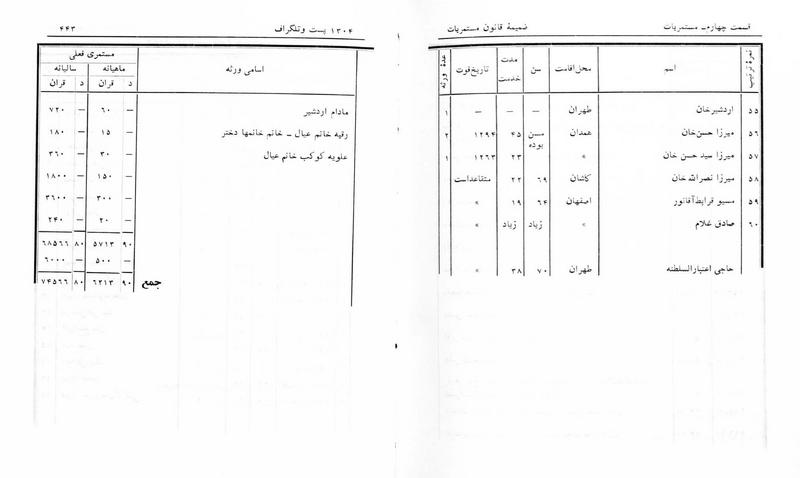 قسمت چهارم ـ مستمریات
ضمیمهٔ قانون مستمریات
نمرهٔ ترتیب
اسم
محل‌اقامت
سن
مدت خدمت
تاریخ‌فوت
عدهٔ ورثه
۵۵ اردشیرخان طهران — — — ۱
۵۶ میرزا حسن‌خان همدان مسن بوده ۴۵ ۱۲۹۴ ۲
۵۷ میرزا سید حسن خان » ۲۳ ۱۲۶۳ ۱
۵۸ میرزا نصرالله‌خان کاشان ۶۹ ۲۲ متقاعداست
۵۹ مسیو قرایط‌آقانور اصفهان ۶۴ ۱۹ »
۶۰ صادق غلام » زیاد زیاد »
حاجی اعتبارالسلطنه طهران ۷۰ ۳۸ »
۱۳۰۴ پست وتلگراف
۴۴۳
اسامی ورثه
مستمری فعلی
ماهیانه سالیانه
د قران د قران
مادام اردشیر — ۶۰ — ۷۲۰
رقیه خانم عیال ـ خانم خانمها دختر — ۱۵ — ۱۸۰
علویه کوکب خانم عیال — ۳۰ — ۳۶۰
— ۱۵۰ — ۱۸۰۰
— ۳۰۰ — ۳۶۰۰
— ۲۰ — ۲۴۰
۹۰ ۵۷۱۳ ۸۰ ۶۸۵۶۶
— ۵۰۰ — ۶۰۰۰
جمع ۹۰ ۶۲۱۳ ۸۰ ۷۴۵۶۶